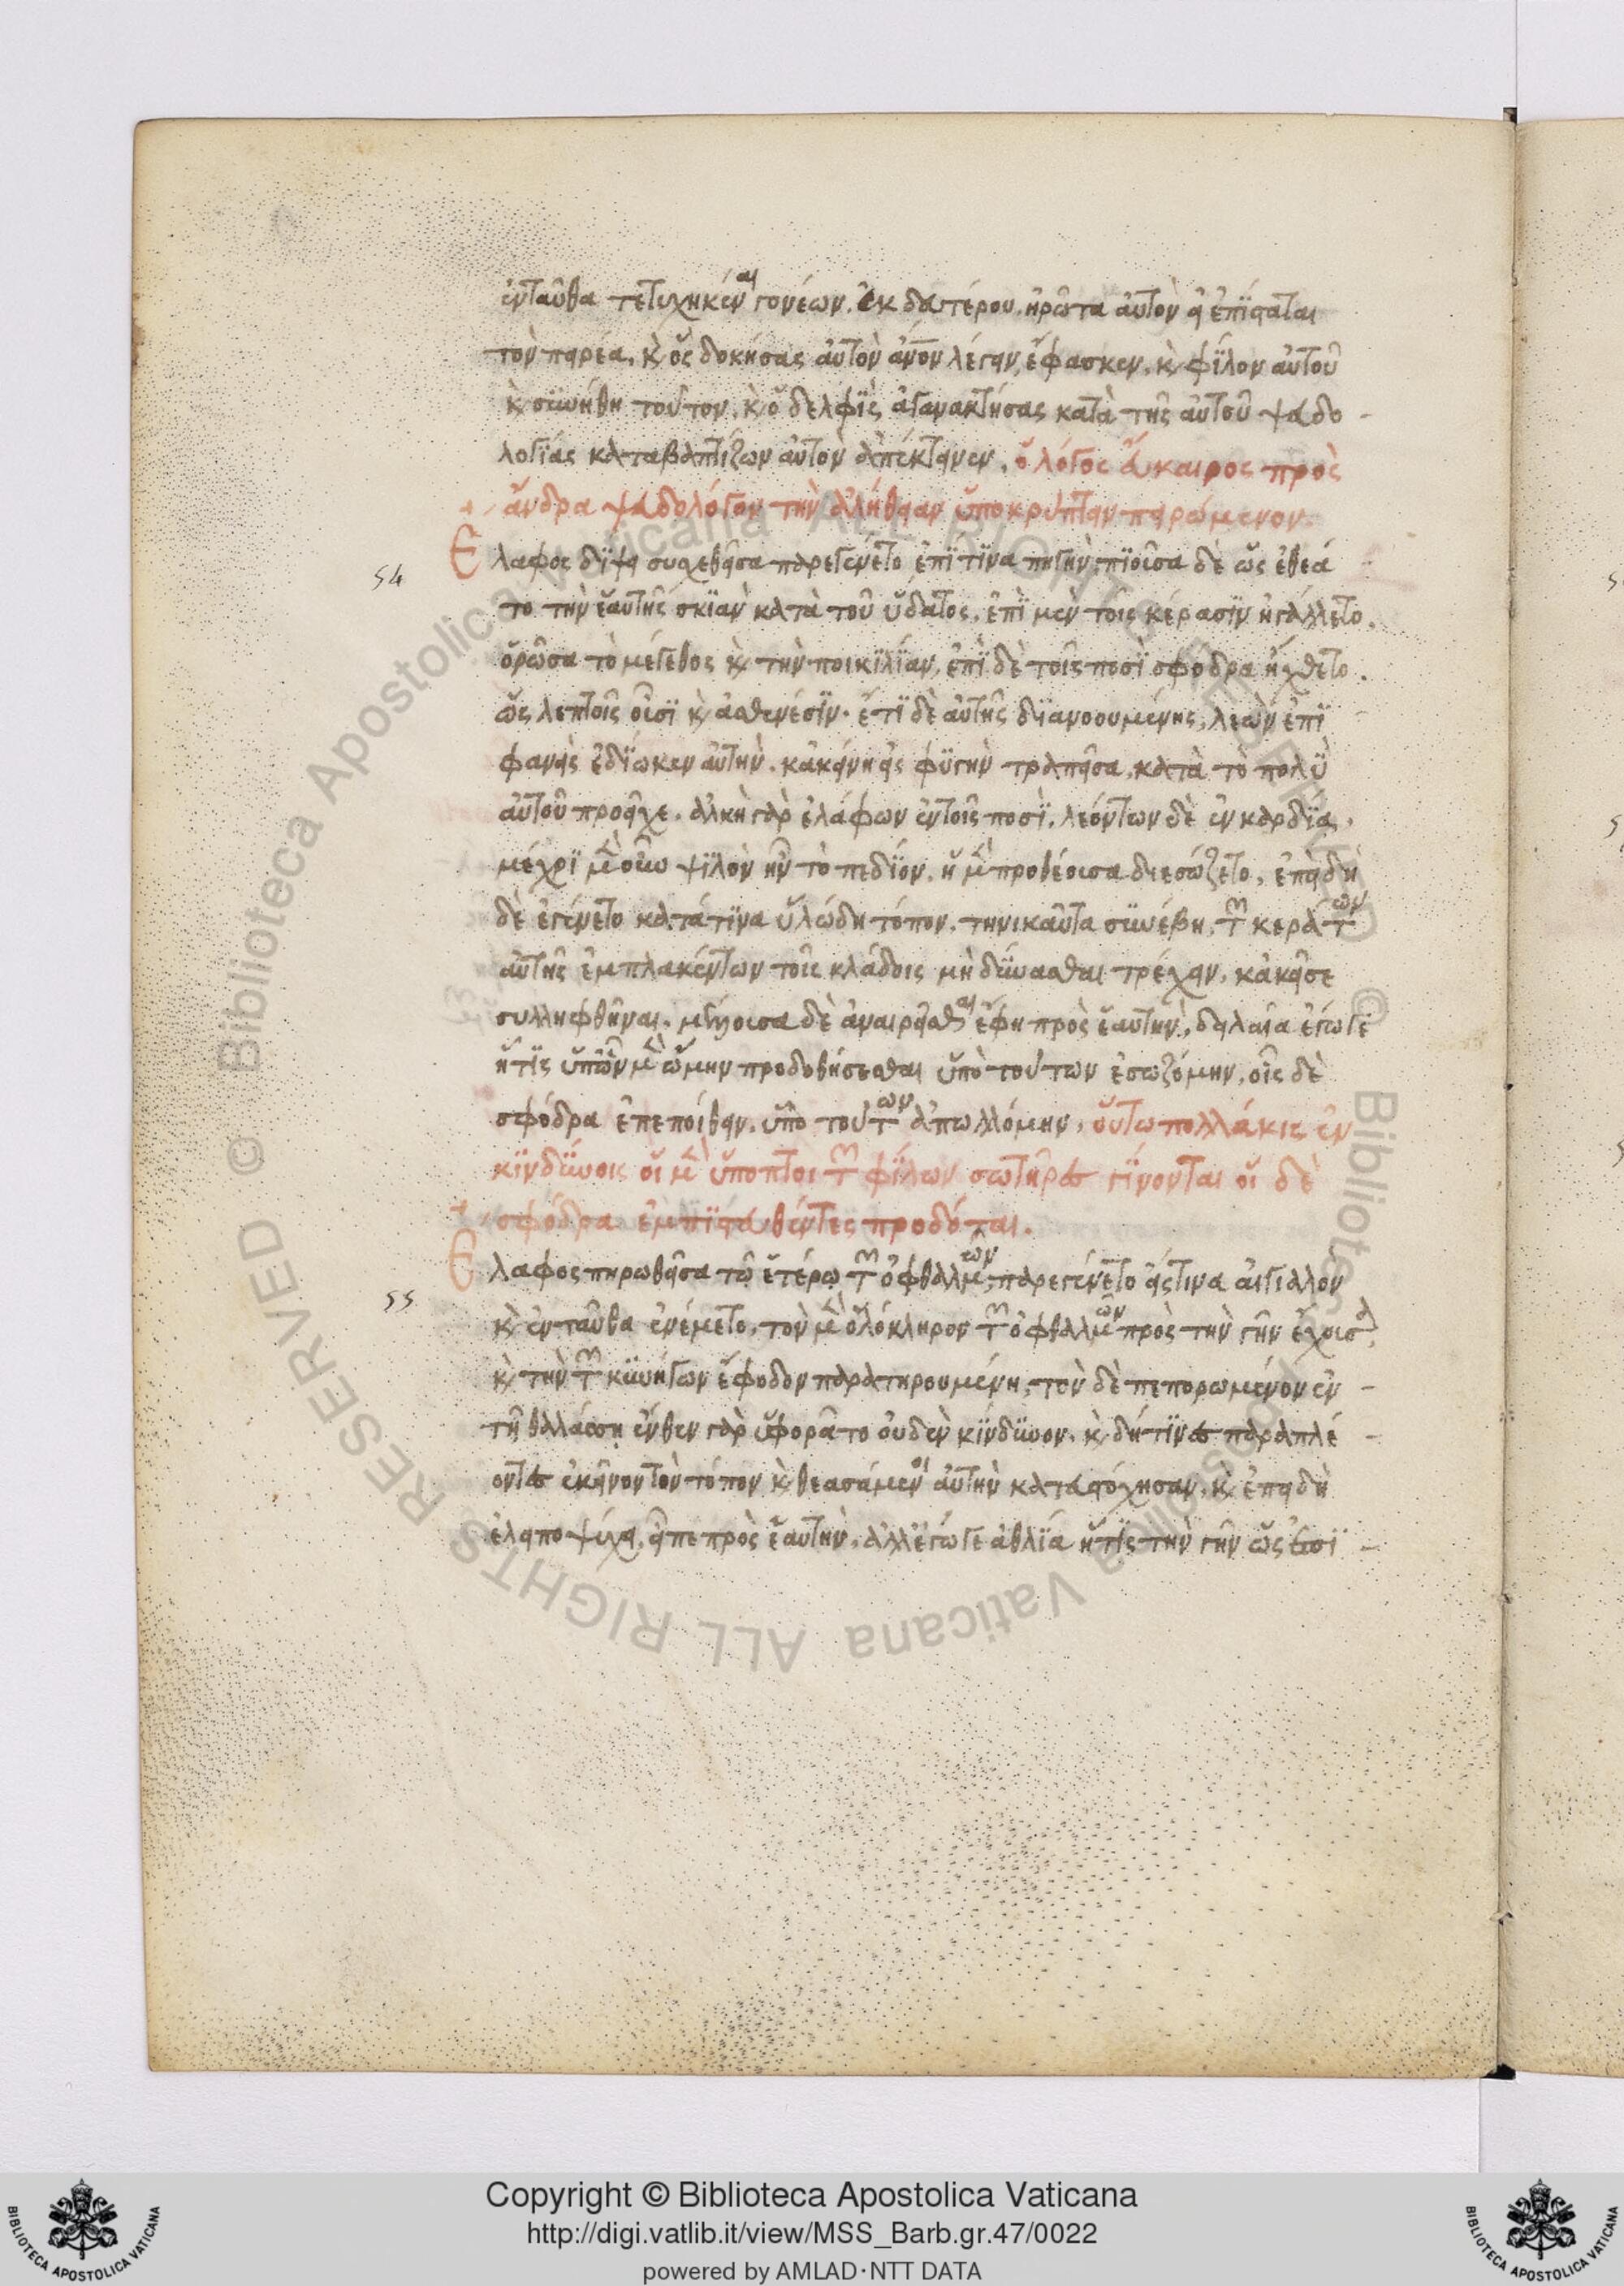 ἐνταῦθα τετυχηκέναι γονέων. ἐκ δευτέρου ἠρώτα αὐτὸν εἰ ἐπίσταται
τὸν πειρέα. κ̀ ὃς δοκήσας αὐτὸν ἄνο̅ν λέγειν, ἔφασκεν, κ̀ φίλον αὐτοῦ
κ̀ συνήθη τοῦτον. κ̀ ὁ δελφὶς ἀγανακτήσας κατὰ τῆς αὐτοῦ ψευδο -
λογίας καταβαπτίζων αὐτὸν ἀπέκτεινεν. ὁ λόγος εὔκαιρος πρὸς
ἄνδρα ψευδολόγον τὴν ἀλήθειαν ὑποκρύπτειν πειρώμενον.
54
Ἔλαφος δίψει συσχεθεῖσα παρεγένετο ἐπί τινα πηγήν, πιοῦσα δὲ ὡς ἐθεά
το τὴν ἑαυτῆς σκιὰν κατὰ τοῦ ὕδατος, ἐπὶ μὲν τοῖς κέρασιν ἠγάλλετο.
ὁρῶσα τὸ μέγεθος κ̀ τὴν ποικιλίαν, ἐπὶ δὲ τοῖς ποσὶ σφόδρα ἤχθετο.
ὡς λεπτοῖς οὖσι κ̀ ἀσθενέσιν. ἔτι δὲ αὐτῆς διανοουμένης, λέων ἐπι
φανεὶς ἐδίωκεν αὐτήν. κἀκείνη εἰς φυγὴν τραπεῖσα, κατὰ τὸ πολὺ
αὐτοῦ προεῖχε. ἀλκὴ γὰρ ἐλάφων ἐν τοῖς ποσὶ. λεόντων δὲ ἐν καρδίᾳ.
μέχρι μὲν οὖν ψιλὸν ἦν τὸ πεδίον. ἡ μὲν προθέουσα διεσώζετο, ἐπειδὴ
δὲ ἐγένετο κατά τινα ὑλώδη τόπον. τηνικαῦτα συνέβη. τῶν κεράτων
αὐτῆς ἐμπλακέντων τοῖς κλάδοις μὴ δύνασθαι τρέχειν. κἀκεῖσε
συλληφθῆναι. μέλλουσα δὲ ἀναιρεῖσθαι ἔφη πρὸς ἑαυτὴν, δειλαία ἐγώγε
ἥτις ὑπ' ὧν μὲν ᾤμην προδοθήσεσθαι ὑπὸ τούτων ἐσωζόμην. οἷς δὲ
σφόδρα ἐπεποίθειν, ὑπὸ τούτων ἀπωλλόμην. οὕτω πολλάκις ἐν
κινδύνοις οἱ μὲν ὕποπτοι τῶν φίλων σωτῆρες γίνονται οἱ δὲ
σφόδρα ἐμπιστευθέντες προδόται.
55
Ἔλαφος πηρωθεῖσα τῷ ἑτέρῳ τῶν ὀφθαλμῶν, παρεγένετο εἴς τινα αἰγιαλὸν
κ̀ ἐνταῦθα ἐνέμετο. τὸν μὲν ὁλόκληρον τῶν ὀφθαλμῶν πρὸς τὴν γῆν ἔχουσα
κ̀ τὴν τῶν κυνήγων ἔφοδον παρατηρουμένη, τὸν δὲ πεπορωμένον ἐν -
τῇ θαλάσσῃ ἔνθεν γὰρ ὑφορᾶτο οὐδὲν κίνδυνον. κ̀ δή τινες παραπλέ -
οντες ἐκεῖνον τὸν τόπον κ̀ θεασάμενοι αὐτὴν κατεστόχησαν, κ̀ ἐπειδὴ
ἐλειποψύχει, εἶπε πρὸς ἑαυτήν. ἀλλ' ἐγώγε ἀθλία ἥτις τὴν γῆν ὡς ἐπὶ -
Copyright © Biblioteca Apostolica Vaticana
http://digi.vatlib.it/view/MSS_Barb.gr.47/0022
powered by AMLAD·NTT DATA